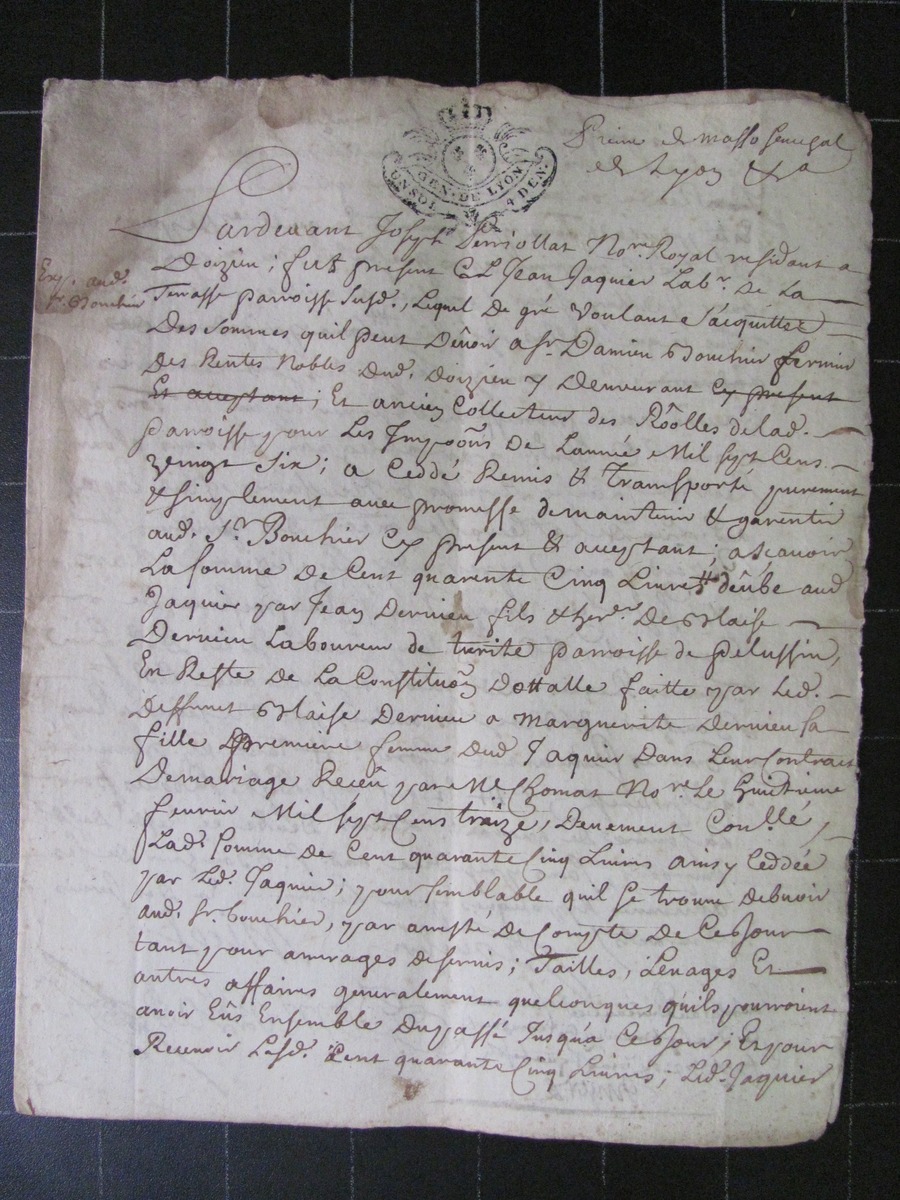 GEN. DE LYON
UN SOL 4 DEN.
de masso senechal
de Lyon &a
Pardevant Joseph Perriollat Nore. Royal residant a
Doizieu; fut present C L Jean Jaquier Labr. De La
Terrasse parroisse susd., Lequel De gré Voulant s'acquitter
Des sommes quil peut Dêuoir a sr. Damien Bouchier fermier
Des Rentes Nobles Dud. Doizieu y Demeurant Cy present
Et acceptant; Et ancien Collecteur des Rôolles delad.
parroisse pour Les Impoõns De Lannée Mil sept Cens
veingt six; a Ceddé Remis & Transporté purement
& simplement auec promesse demaintenir & garentir
aud. Sr. Bouchier Cy present & acceptant; ascauoir
La somme De Cent quarente Cinq Liures dêube aud
Jaquier par Jean Dernieu fils & herer. De Blaise
Dernieu Laboureur de parroisse de pelussin,
En Reste De La Constituõn Dottalle faitte par Led.
Deffunct Blaise Dernieu a Marguerite Dernieu sa
fille & premiere femme Dud Jaquier Dans Leur Contract
Demariage Recêu par Me Chomat Nore. Le Huitieme
feurier Mil sept Cens traize, Deuement Conllé,
Lad. somme De Cent quarante Cinq Liures ainsy Ceddée
par Led. Jaquier; pour semblable quil se trouue Debuoir
aud. sr. bouchier, par arresté De Compte De Cejour
tant pour arrerages deseruis; Tailles, Leuages Et
autres affaires generalement quelconques quils pourroient
auoir Eûs Ensemble Dupassé Jusqua Cejour; Et pour
Receuoir Lesd. Cent quarante Cinq Liures; Led. Jaquier
Exp. aud.
sr. Bouchier